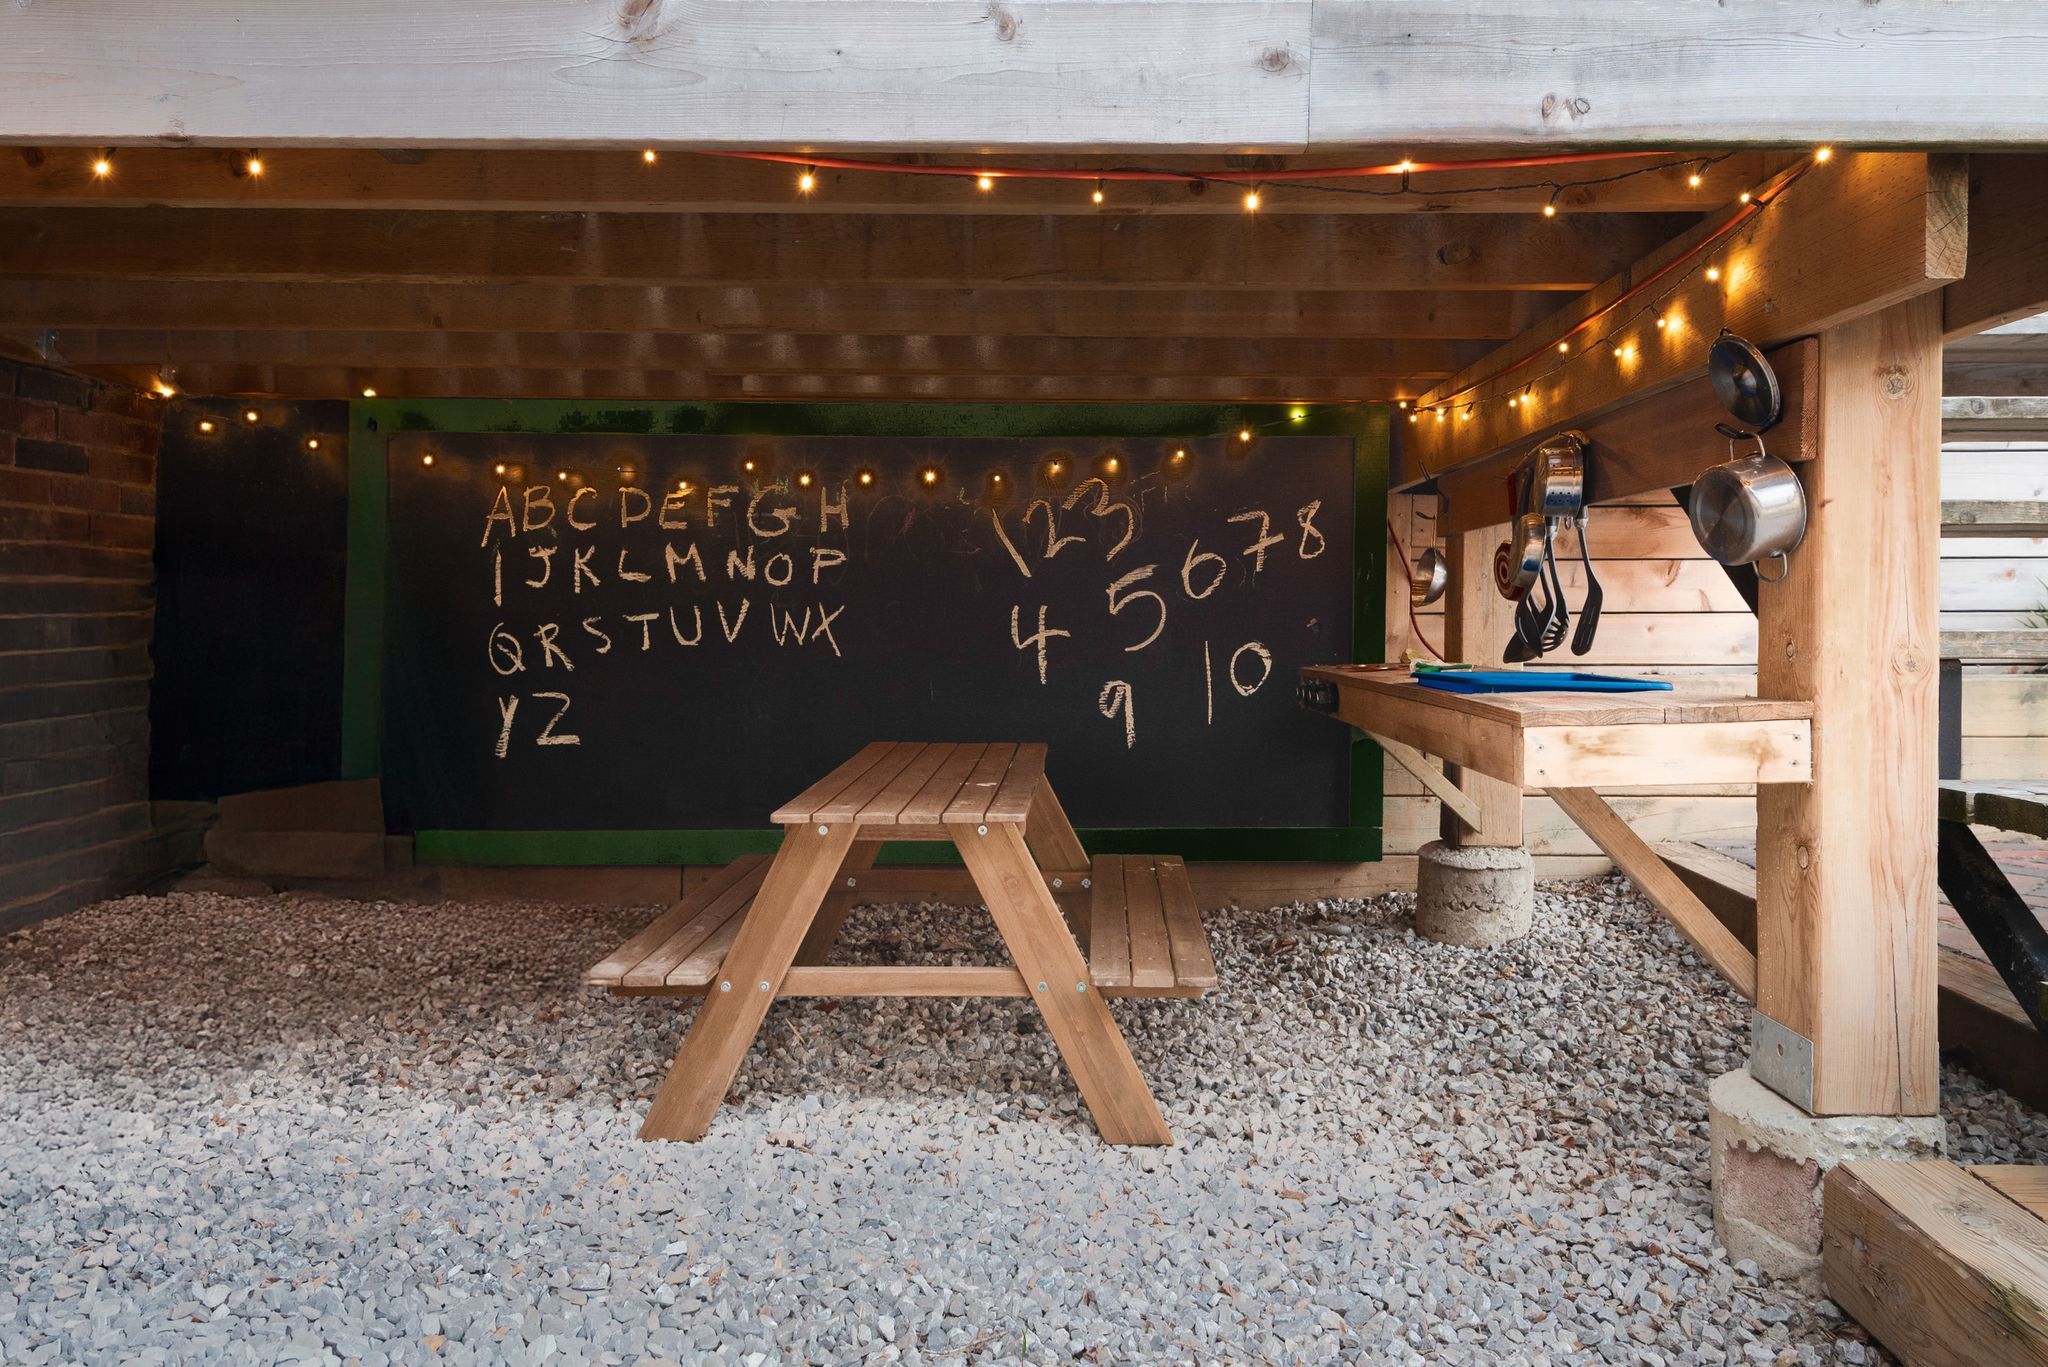 ABCDEFGH
IJKLMNOP
QRSTUVWX
YZ
123
4 5 6 7 8
9 10